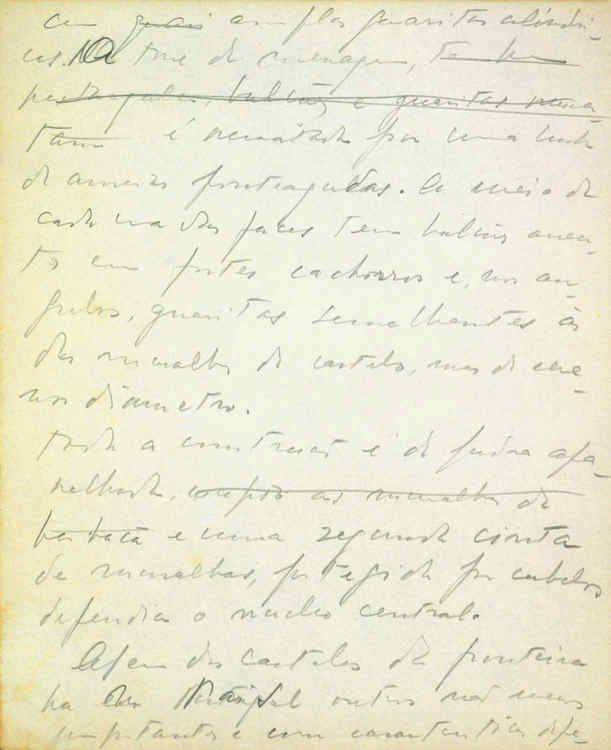 em quais amplas guaritas cilindri-
cas. A torre de menagem, tem
rectangular, balcões e guaritas rema-
tam é rematada por uma linha
de ameias ponteagudas. A meio de
cada uma das faces tem balcões assen-
tos em fortes cachorros e, nos an-
gulos, guaritas semelhantes às
das muralhas do castelo, mas de me-
nor diametro.
toda a construcção é de pedra apa-
relhada, as muralhas da
barbacã e uma segunda cinta
de muralhas, protegida por cubelos
defendia o nucleo central.
Alem dos castelos da fronteira
ha em Portugal outros não menos
importantes e com caracteristicas